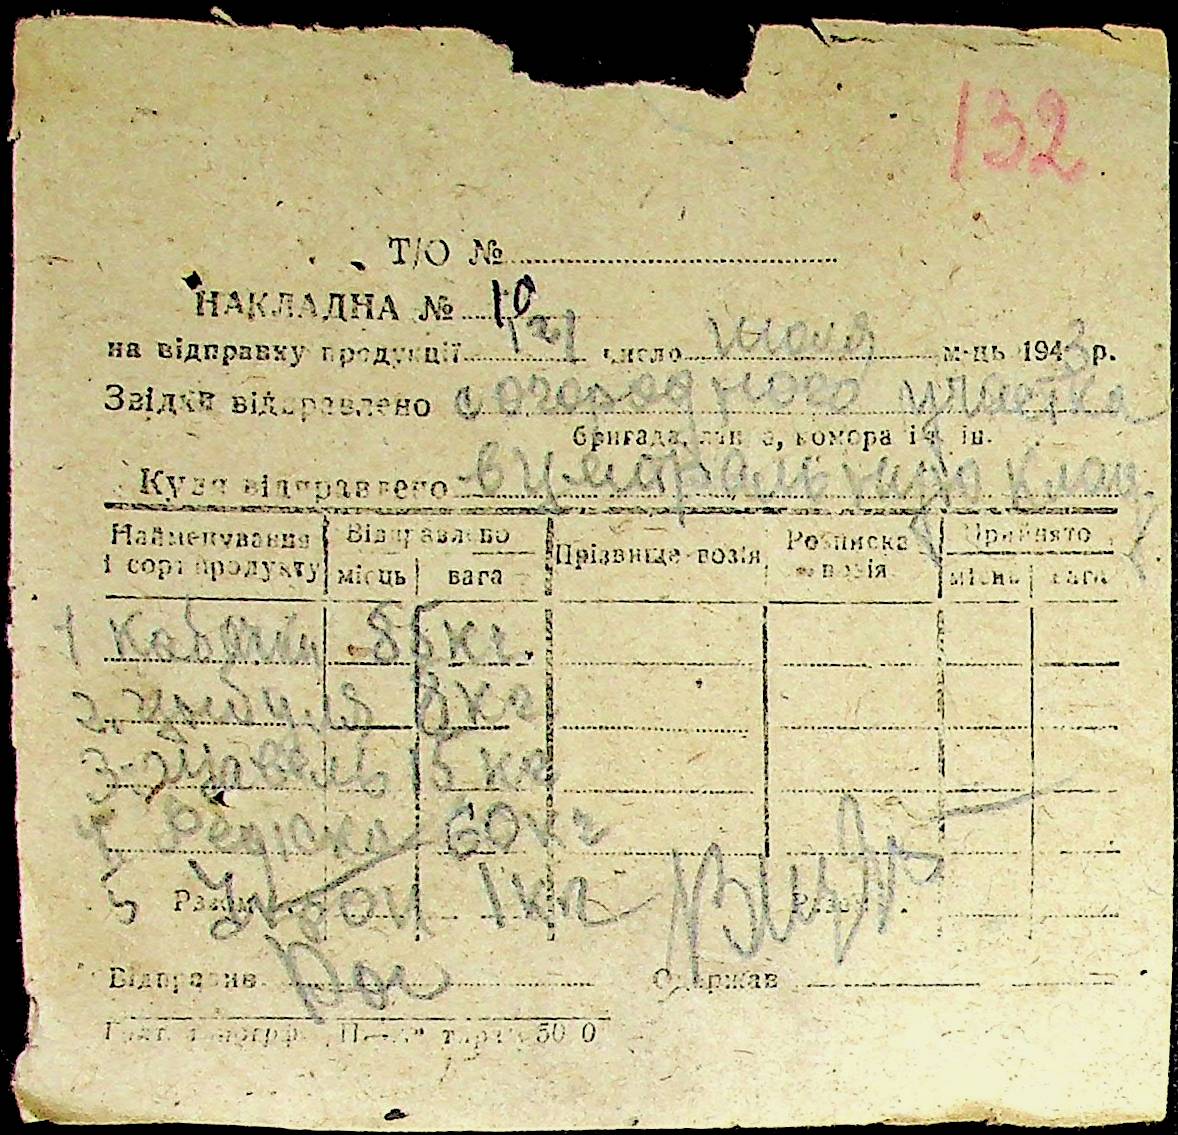 132
Т/О №
НАКЛАДНА № 10
на відправку продукції 21 число июля м-ць 1943 р.
Звідки відправлено с огородного участка
бригада, ланка, комора і т. ін.
Куди відправлено в центральную клад.
Найменування і сорт продукту Відправлено місць вага Прізвище возія Розписка возія Прийнято місць вага
1 Кабачки 55 кг.
2. цибуля 8 кг
3- щавель 15 кг
4 Редиска 60 кг
5 Разом Укроп 1 кг Разом
Відправив Одержав